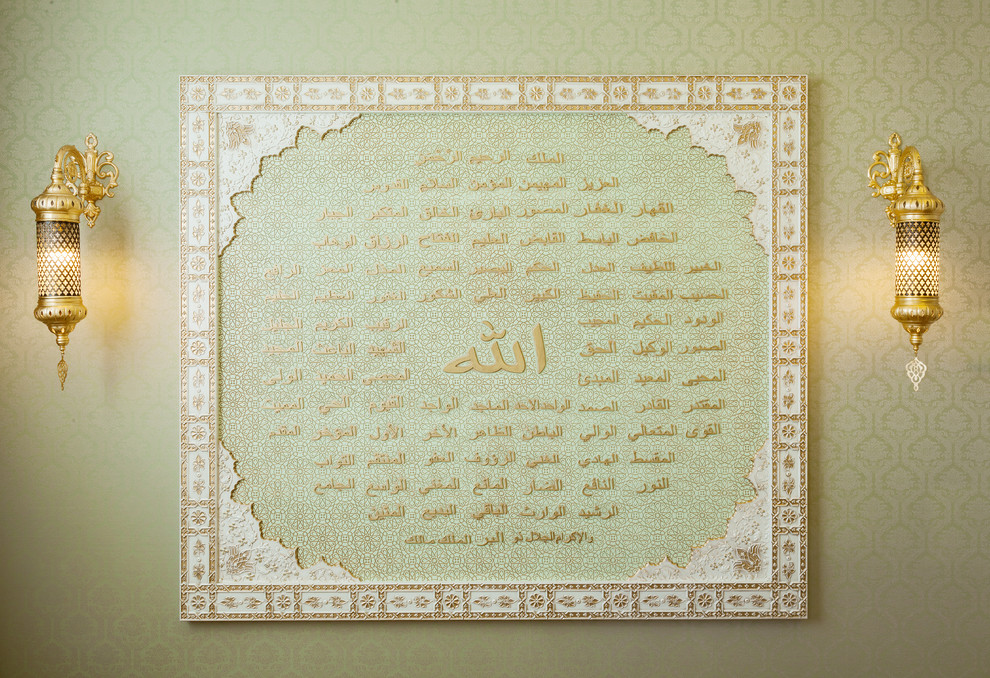 الملك الرحيم الرحمن
العزيز المهيمن المؤمن السلام القدوس
القهار الغفار المصور البارئ الخالق المتكبر الجبار
الخافض الباسط القابض العليم الفتاح الرزاق الوهاب
الخبير اللطيف العدل الحكم البصير السميع المذل المعز الرافع
الحسيب المقيت الحفيظ الكبير العلي الشكور الغفور العظيم
الودود الحكيم المجيب الرقيب الكريم الجليل
الصبور الوكيل الحق الشهيد الباعث المجيد
الله
المحيى المعيد المبدئ المحصي الحميد الولى
المقتدر القادر الصمد الواحد الاحد الماجد الواجد القيوم الحي المميت
القوى المتعالى الوالي الباطن الظاهر الآخر الأول المؤخر المقدم
المقسط الهادي الغني الرؤوف العفو المنتقم التواب
النور النافع الضار المانع المغني الواسع الجامع
الرشيد الوارث الباقي البديع المتين
والإكرام الجلال ذو البر الملك مالك